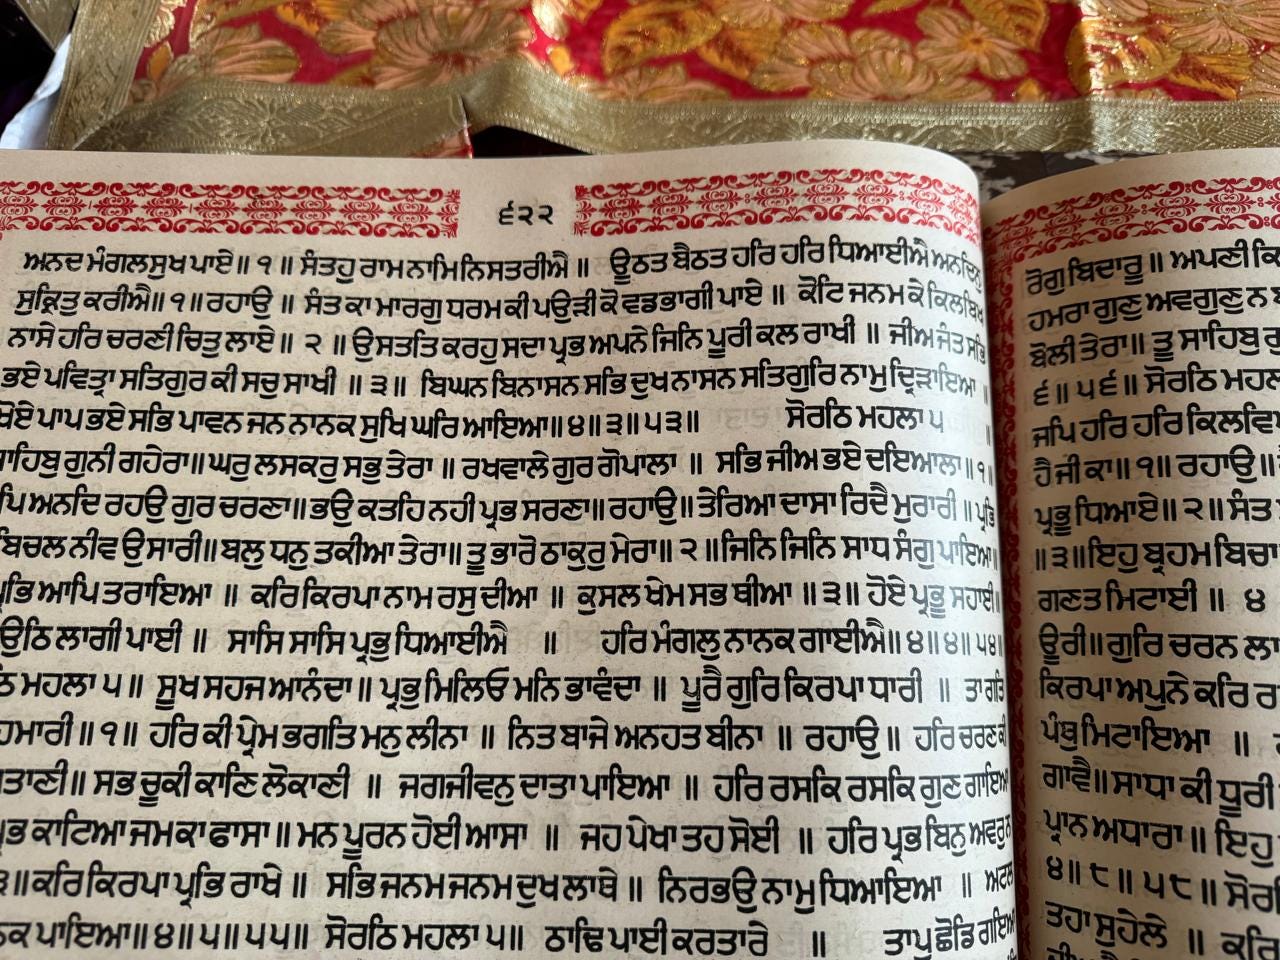 ੬੨੨
ਅਨਦ ਮੰਗਲ ਸੁਖ ਪਾਏ॥ ੧ ॥ ਸੰਤਹੁ ਰਾਮ ਨਾਮਿ ਨਿਸਤਰੀਐ ॥ ਊਠਤ ਬੈਠਤ ਹਰਿ ਹਰਿ ਧਿਆਈਐ ਅਨਦਿਨੁ
ਸੁਕ੍ਰਿਤੁ ਕਰੀਐ॥੧॥ ਰਹਾਉ ॥ ਸੰਤ ਕਾ ਮਾਰਗੁ ਧਰਮ ਕੀ ਪਉੜੀ ਕੋ ਵਡਭਾਗੀ ਪਾਏ ॥ ਕੋਟਿ ਜਨਮ ਕੇ ਕਿਲਬਿਖ
ਨਾਸੇ ਹਰਿ ਚਰਣੀ ਚਿਤੁ ਲਾਏ॥ ੨ ॥ ਉਸਤਤਿ ਕਰਹੁ ਸਦਾ ਪ੍ਰਭ ਅਪਨੇ ਜਿਨਿ ਪੂਰੀ ਕਲ ਰਾਖੀ ॥ ਜੀਅ ਜੰਤ ਸਭਿ
ਭਏ ਪਵਿਤ੍ਰਾ ਸਤਿਗੁਰ ਕੀ ਸਚੁ ਸਾਖੀ ॥ ੩॥ ਬਿਘਨ ਬਿਨਾਸਨ ਸਭਿ ਦੁਖ ਨਾਸਨ ਸਤਿਗੁਰਿ ਨਾਮੁ ਦ੍ਰਿੜਾਇਆ ॥
ਖੋਏ ਪਾਪ ਭਏ ਸਭਿ ਪਾਵਨ ਜਨ ਨਾਨਕ ਸੁਖਿ ਘਰਿ ਆਇਆ॥੪॥੩॥੫੩॥ ਸੋਰਠਿ ਮਹਲਾ ੫ ॥
ਸਾਹਿਬੁ ਗੁਨੀ ਗਹੇਰਾ॥ ਘਰੁ ਲਸਕਰੁ ਸਭੁ ਤੇਰਾ ॥ ਰਖਵਾਲੇ ਗੁਰ ਗੋਪਾਲਾ ॥ ਸਭਿ ਜੀਅ ਭਏ ਦਇਆਲਾ॥੧॥
ਅਨਦਿ ਰਹਉ ਗੁਰ ਚਰਣਾ॥ ਭਉ ਕਤਹਿ ਨਹੀ ਪ੍ਰਭ ਸਰਣਾ॥ ਰਹਾਉ॥ ਤੇਰਿਆ ਦਾਸਾ ਰਿਦੈ ਮੁਰਾਰੀ ॥ ਪ੍ਰਭਿ
ਬਿਚਲ ਨੀਵ ਉਸਾਰੀ॥ ਬਲੁ ਧਨੁ ਤਕੀਆ ਤੇਰਾ॥ ਤੂ ਭਾਰੋ ਠਾਕੁਰੁ ਮੇਰਾ॥ ੨ ॥ਜਿਨਿ ਜਿਨਿ ਸਾਧ ਸੰਗੁ ਪਾਇਆ॥
ਆਪਿ ਤਰਾਇਆ ॥ ਕਰਿ ਕਿਰਪਾ ਨਾਮ ਰਸੁ ਦੀਆ ॥ ਕੁਸਲ ਖੇਮ ਸਭ ਥੀਆ ॥੩॥ ਹੋਏ ਪ੍ਰਭੂ ਸਹਾਈ॥
ਉਠਿ ਲਾਗੀ ਪਾਈ ॥ ਸਾਸਿ ਸਾਸਿ ਪ੍ਰਭੁ ਧਿਆਈਐ ॥ ਹਰਿ ਮੰਗਲੁ ਨਾਨਕ ਗਾਈਐ॥੪॥੪॥੫੪॥
ਮਹਲਾ ੫॥ ਸੂਖ ਸਹਜ ਆਨੰਦਾ॥ ਪ੍ਰਭੁ ਮਿਲਿਓ ਮਨਿ ਭਾਵੰਦਾ ॥ ਪੂਰੈ ਗੁਰਿ ਕਿਰਪਾ ਧਾਰੀ ॥ ਤਾ ਗਤਿ
ਹਮਾਰੀ॥੧॥ ਹਰਿ ਕੀ ਪ੍ਰੇਮ ਭਗਤਿ ਮਨੁ ਲੀਨਾ ॥ ਨਿਤ ਬਾਜੇ ਅਨਹਤ ਬੀਨਾ ॥ ਰਹਾਉ॥ ਹਰਿ ਚਰਣ ਕੀ
ਤਾਣੀ॥ ਸਭ ਚੂਕੀ ਕਾਣਿ ਲੋਕਾਣੀ ॥ ਜਗਜੀਵਨੁ ਦਾਤਾ ਪਾਇਆ ॥ ਹਰਿ ਰਸਕਿ ਰਸਕਿ ਗੁਣ ਗਾਇਆ
ਪ੍ਰਭ ਕਾਟਿਆ ਜਮ ਕਾ ਫਾਸਾ॥ ਮਨ ਪੂਰਨ ਹੋਈ ਆਸਾ ॥ ਜਹ ਪੇਖਾ ਤਹ ਸੋਈ ॥ ਹਰਿ ਪ੍ਰਭ ਬਿਨੁ ਅਵਰੁ ਨ
੩॥ ਕਰਿ ਕਿਰਪਾ ਪ੍ਰਭਿ ਰਾਖੇ ॥ ਸਭਿ ਜਨਮ ਜਨਮ ਦੁਖ ਲਾਥੇ॥ ਨਿਰਭਉ ਨਾਮੁ ਧਿਆਇਆ ॥ ਅਟਲ
ਪਾਇਆ॥੪॥੫॥੫੫॥ ਸੋਰਠਿ ਮਹਲਾ ੫॥ ਠਾਢਿ ਪਾਈ ਕਰਤਾਰੇ ॥ ਤਾਪੁ ਛੋਡਿ ਗਇਆ
ਰੋਗੁ ਬਿਦਾਰੂ॥ ਅਪਣੀ
ਹਮਰਾ ਗੁਣੁ ਅਵਗੁਣੁ ਨ
ਬੋਲੀ ਤੇਰਾ॥ ਤੂ ਸਾਹਿਬੁ
੬॥੫੬॥ ਸੋਰਠਿ ਮਹਲਾ
ਜਪਿ ਹਰਿ ਹਰਿ ਕਿਲਵਿ
ਹੈ ਜੀ ਕਾ॥੧॥ ਰਹਾਉ॥
ਪ੍ਰਭੂ ਧਿਆਏ॥੨॥ ਸੰਤ
॥੩॥ਇਹੁ ਬ੍ਰਹਮ ਬਿਚਾ
ਗਣਤ ਮਿਟਾਈ ॥ ੪
ਊਰੀ॥ ਗੁਰਿ ਚਰਨ ਲਾ
ਕਿਰਪਾ ਅਪੁਨੇ ਕਰਿ
ਪੰਥੁ ਮਿਟਾਇਆ ॥
ਗਾਵੈ॥ ਸਾਧਾ ਕੀ ਧੂਰੀ
ਪ੍ਰਾਨ ਅਧਾਰਾ॥ ਇਹੁ
੪॥੮॥੫੮॥ ਸੋਰਠਿ
ਤਹਾ ਸੁਹੇਲੇ ॥ ਕਰਿ